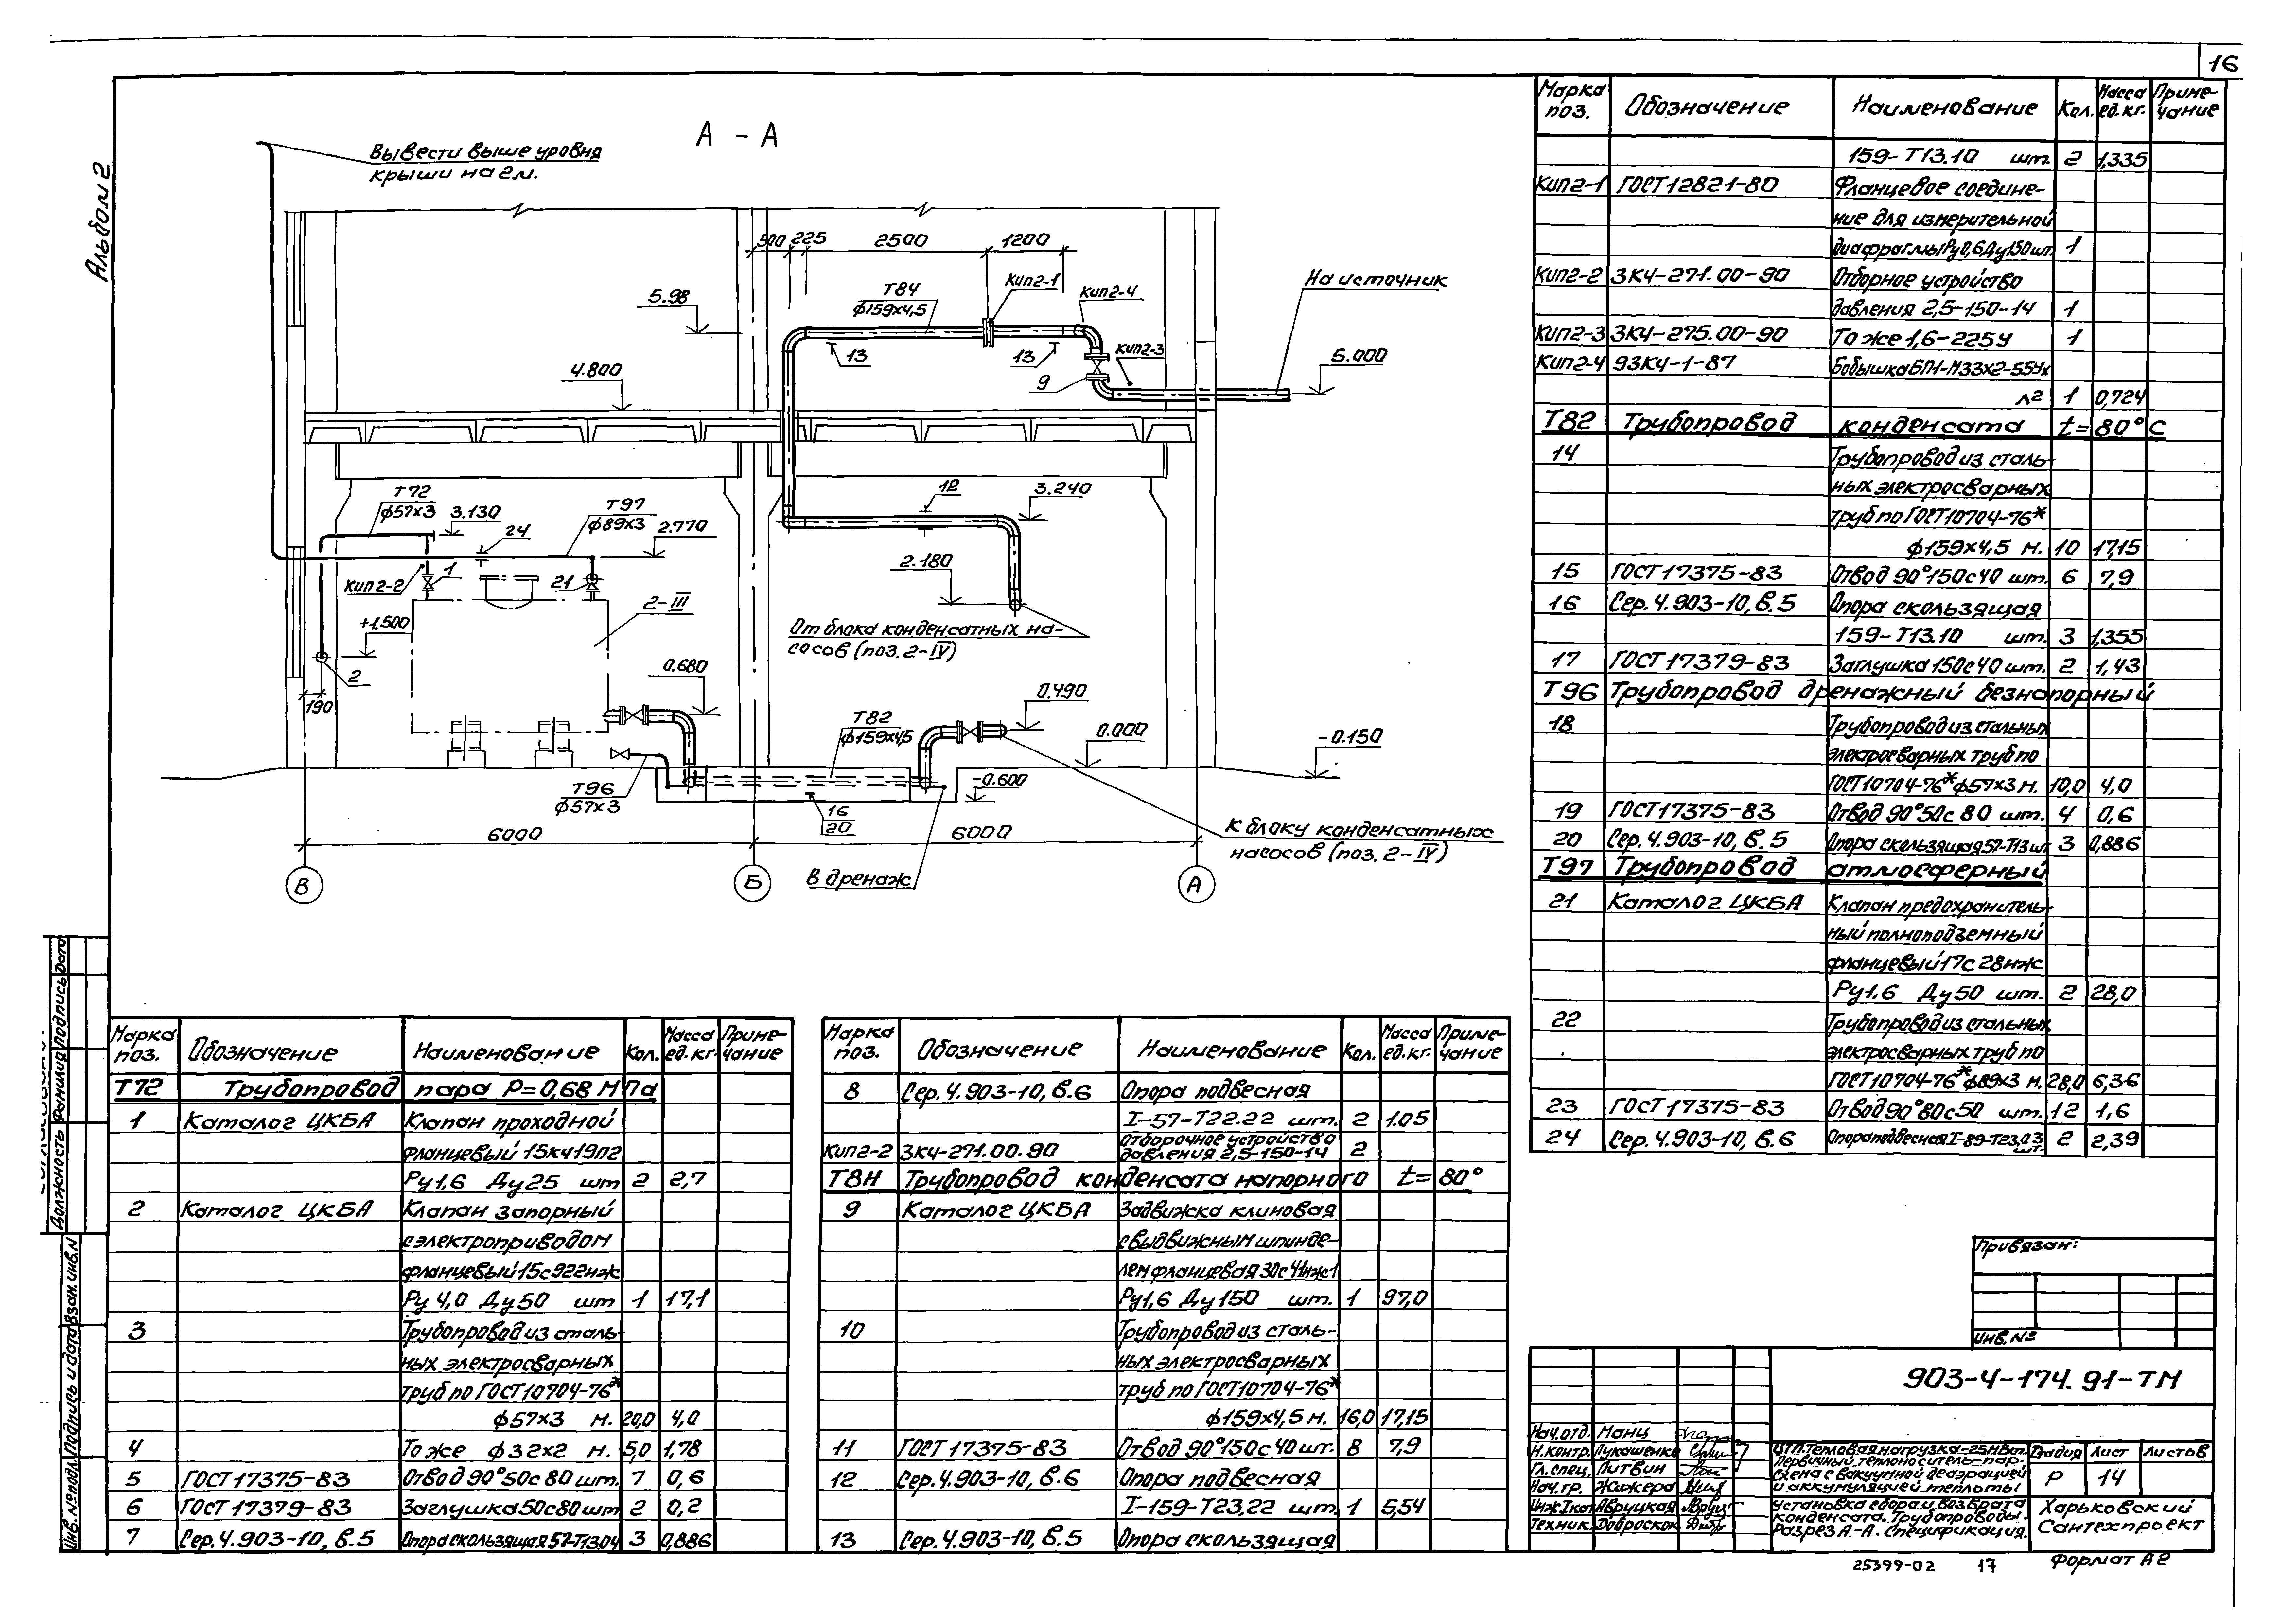 16
Альбом 2
А - А
Вывести выше уровня
крыши на 2м.
500 225 2500 1200
Т84
ф159х4,5
Кип2-1
Кип2-4
На источник
5.98
13
13
Кип2-3
5.000
4.800
9
Т72
ф57х3
3.130
24
Т97
ф89х3
2.770
12
3.240
Кип2-2
1
21
2.180
2-III
+1.500
От блока конденсатных на-
сосов (поз. 2-IV)
2
190
0.680
0.490
Т82
ф159х4,5
0.000
-0.150
Т96
ф57х3
-0.600
16
20
6000
6000
К блоку конденсатных
насосов (поз. 2-IV)
В дренаж
В
Б
А
Марка поз. Обозначение Наименование Кол. Масса ед.кг. Приме-чание
159-Т13.10 шт. 2 1,335
Кип2-1 ГОСТ12821-80 Фланцевое соедине-
ние для измерительной
диафрагмы Ру0,6 Ду150 шт. 1
Кип2-2 ЗК4-271.00-90 Отборное устройство
давления 2,5-150-14 1
Кип2-3 ЗК4-275.00-90 То же 1,6-225У 1
Кип2-4 93К4-1-87 Бобышка БП1-М33х2-55Ух
л2 1 0,724
Т82 Трубопровод конденсата t=80°С
14 Трубопровод из сталь-
ных электросварных
труб по ГОСТ10704-76*
ф159х4,5 м. 10 17,15
15 ГОСТ17375-83 Отвод 90°150с40 шт. 6 7,9
16 Сер.4.903-10, в.5 Опора скользящая
159-Т13.10 шт. 3 1,355
17 ГОСТ17379-83 Заглушка 150с40 шт. 2 1,43
Т96 Трубопровод дренажный безнапорный
18 Трубопровод из стальных
электросварных труб по
ГОСТ10704-76* ф57х3 м. 10,0 4,0
19 ГОСТ17375-83 Отвод 90°50с80 шт. 4 0,6
20 Сер.4.903-10, в.5 Опора скользящая 57-Т13 шт 3 0,886
Т97 Трубопровод атмосферный
21 Каталог ЦКБА Клапан предохранитель-
ный полноподъемный
фланцевый 17с28нж
Ру1,6 Ду50 шт. 2 28,0
22 Трубопровод из стальных
электросварных труб по
ГОСТ10704-76* ф89х3 м. 28,0 6,36
23 ГОСТ17375-83 Отвод 90°80с50 шт. 12 1,6
24 Сер.4.903-10, в.6 Опора подвесная I-89-Т23.03 шт. 2 2,39
Марка поз. Обозначение Наименование Кол. Масса ед.кг. Приме-чание
Т72 Трубопровод пара Р=0,68 МПа
1 Каталог ЦКБА Клапан проходной
фланцевый 15кч19п2
Ру1,6 Ду25 шт 2 2,7
2 Каталог ЦКБА Клапан запорный
с электроприводом
фланцевый 15с922нж
Ру 4,0 Ду50 шт 1 17,1
3 Трубопровод из сталь-
ных электросварных
труб по ГОСТ10704-76*
ф57х3 м. 20,0 4,0
4 То же ф32х2 м. 5,0 1,78
5 ГОСТ17375-83 Отвод 90°50с80 шт. 7 0,6
6 ГОСТ17379-83 Заглушка 50с80 шт 2 0,2
7 Сер.4.903-10, в.5 Опора скользящая 57-Т13.04 3 0,886
Марка поз. Обозначение Наименование Кол. Масса ед.кг. Приме-чание
8 Сер.4.903-10, в.6 Опора подвесная
I-57-Т22.22 шт. 2 1.05
Кип2-2 ЗК4-271.00.90 Отборочное устройство давления 2,5-150-14 2
Т8Н Трубопровод конденсата напорного t=80°
9 Каталог ЦКБА Задвижка клиновая
с выдвижным шпинде-
лем фланцевая 30с41нж1
Ру1,6 Ду150 шт. 1 97,0
10 Трубопровод из сталь-
ных электросварных
труб по ГОСТ10704-76*
ф159х4,5 м. 16,0 17,15
11 ГОСТ17375-83 Отвод 90°150с40 шт. 8 7,9
12 Сер.4.903-10, в.6 Опора подвесная
I-159-Т23,22 шт. 1 5,54
13 Сер.4.903-10, в.5 Опора скользящая
Должность Фамилия Подпись Дата
Инв.№ подл. Подпись и дата Взам.инв.№
Привязан:
Инв.№
903-4-174.91-ТМ
Нач.отд. Манц
Н.контр. Лукашенко
Гл.спец. Литвин
Нач.гр. Жижера
Инж.Iкат Авруцкая
Техник. Доброскок
ЦТП. Тепловая нагрузка-25МВт.
Первичный теплоноситель-пар.
Схема с вакуумной деаэрацией
и аккумуляцией теплоты
Стадия Лист Листов
Р 14
Установка сбора и возврата
конденсата. Трубопроводы.
Разрез А-А. Спецификация.
Харьковский
Сантехпроект
25399-02 17 Формат А2